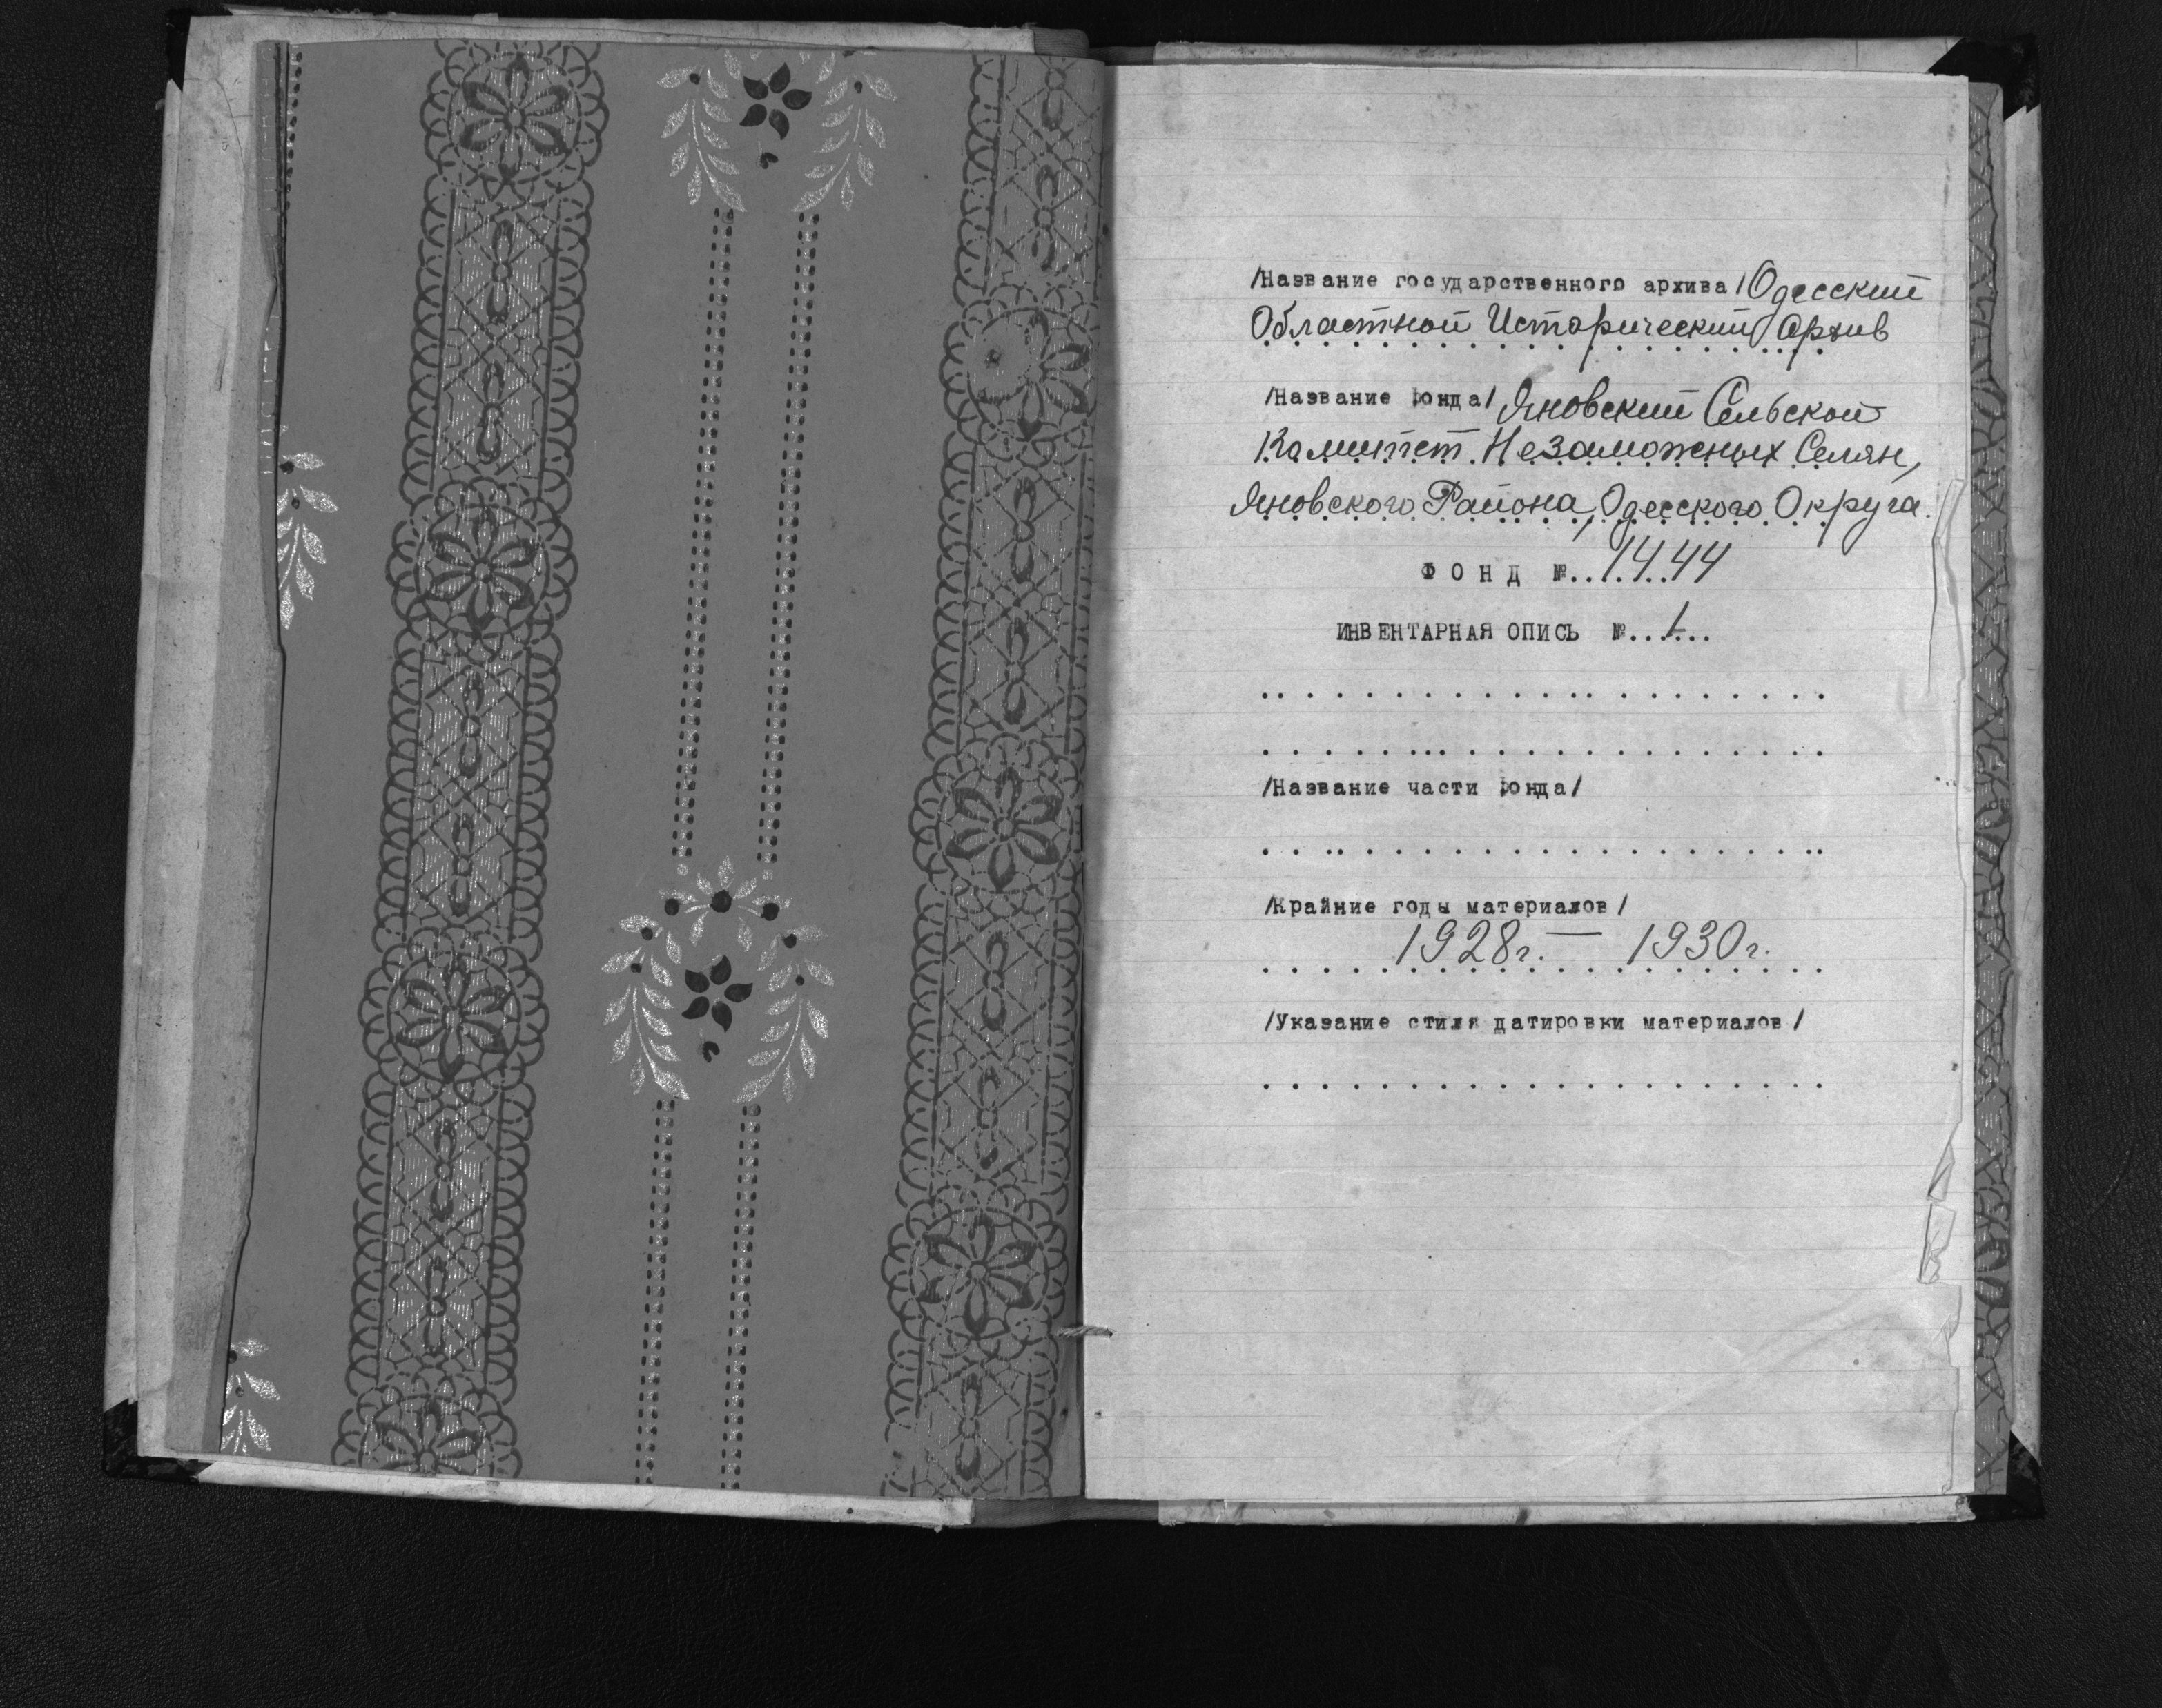 /Название государственного архива/ Одесский
Областной Исторический Архив
/Название фонда/ Яновский Сельской
Комитет Незаможных Селян,
Яновского Района, Одесского Округа.
ФОНД №..1444
ИНВЕНТАРНАЯ ОПИСЬ №...1...
/Название части фонда/
/Крайние годы материалов/
1928г. — 1930г.
/Указание стиля датировки материалов/